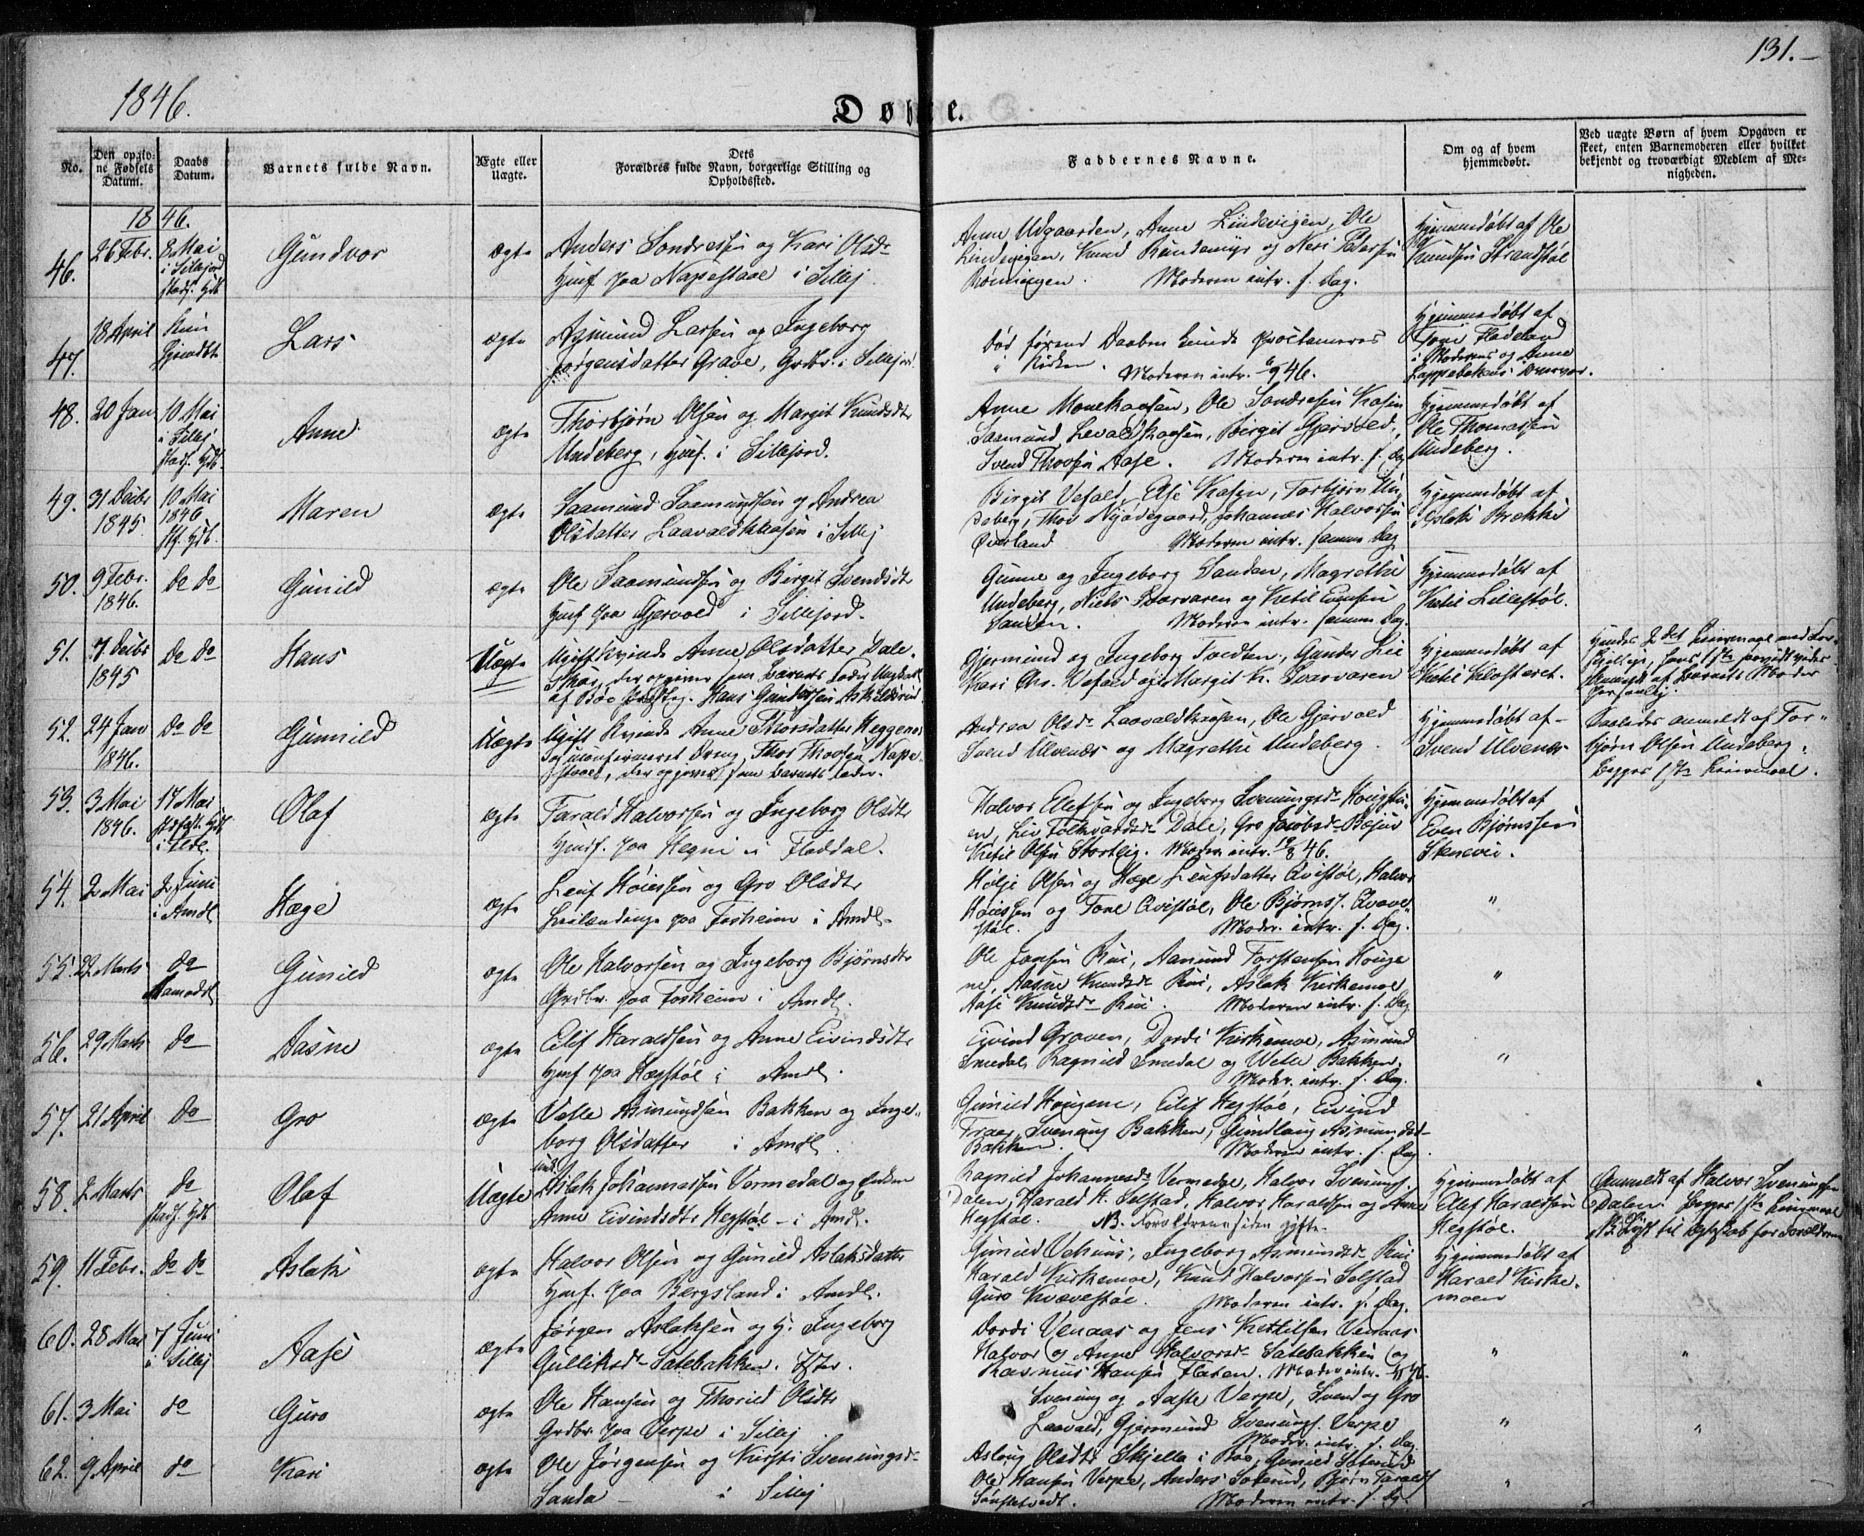 131.-
1846.
Døbte.
No.
Den opgivne Fødsels Datum.
Daabs Datum.
Barnets fulde Navn.
Ægte eller Uægte.
Dets Forældres fulde Navn, borgerlige Stilling og Opholdssted.
Faddernes Navne.
Om og af hvem hjemmedøbt.
Ved uægte Børn af hvem Opgaven er skeet, enten Barnemoderen eller hvilket bekjendt og troværdigt Medlem af Menigheden.
1846.
46. 26 Febr. 8 Mai i Sillejord stadf. Hdb.
Gundvor
ægte
Anders Sondresen og Kari Olsd-
Husf. paa Napestaae i Sillej.
Anne Udgaarden, Anne Lindevigen, Ole
Lindevigen, Knud Rundemyr og Neri Pedersen
Rønningen. Moderen intr. s. Dag.
Hjemmedøbt af Ole
Knudsen Strandstøl
47. 18 April
Lars
ægte
Asmund Larsen og Ingeborg
Jørgensdatter Grave, Grdbr. i Sillejord
død førend Daaben kunde proclameres
i Kirken. Moderen intr. 6/9 46.
Hjemmedøbt af
Tone Fladeland
i Moderens og Anne
48. 20 Jan 10 Mai i Sillej stadf. Hdb.
Anne
ægte
Thorbjørn Olsen og Margit Knudsdtr
Undeberg, Husf. i Sillejord.
Anne Monekaasen, Ole Sondresen Kasin
Saamund Levaldkaasen, Birgit Gjervold,
Svend Thovsen Aase. Moderen intr. s. Dag
Hjemmedøbt af
Ole Thomassen
Undeberg.
49. 31 Decbr 1845. 10 Mai 1846 stf. Hdb.
Maren
ægte
Saamund Saamundsen og Andrea
Olsdatter Laavaldkaasen i Sillej
Birgit Vefald, Else Kasin, Torbjørn Un
deberg, Thov Nyodegaard, Johannes Halvorsen
Øverland Moderen intr. samme Dag
Hjemmedøbt af
Aslak Brekke
50. 9 Febr. 1846. do do
Gunild
ægte
Ole Saamundsen og Birgit Svendsdtr
Husf paa Gjervold i Sillejord.
Gunne og Ingeborg Sanden, Magrethe
Undeberg, Niels Storvaren og Ketil Evensen
Sanden. Moderen intr. samme Dag.
Hjemmedøbt af
Ketil Lillestøl.
51. 7 Decbr 1845 do do
Hans
Uægte
Ugift Kvinde Anne Olsdatter Dale.
Skar, der opgiver som Barnets Fader Ungkarl
af Bøe Præsteg. Hans Gundersen Askildsrud
Gjermund og Ingeborg Tvedten, Gunder Lie
Kari Chr. Vefald og Margit K. Svarvaren
Hjemmedøbt af
Ketil Klosteret.
Hendes 2det Leiermaal med For-
anmeldt af Barnets Moder
personlig.
52. 24 Jan 1846. do do
Gunnild
Uægte
Ugift Kvinde Anne Thorsdatter Heggenes
og uconfirmeret Dreng Thor Thovsen Nape-
staae, der opgives som Barnets Fader.
Andrea Olsd- Laavaldkaasen, Ole Gjervold
Svend Ulvenæs og Magrethe Undeberg.
Hjemmedøbt af-
Svend Ulvenæs
Saaledes anmeldt af Tor-
bjørn Olsen Undeberg.
Begges 1ste Leiermaal.
53. 3 Mai 1846. 17 Mai
Olaf
ægte
Tarald Halvorsen og Ingeborg Olsdtr
Husf. paa Hegni i Fladdal.
Halvor Ellefsen og Ingeborg Sveningsd-
en, Liv Folkvardsd- Dale, Gro Jacobsd- Bøsin
Ketil Olsen Stortlig. Moder. intr. 46.
Hjemmedøbt af
Even Bjørnssen
Skrevei.
54. 2 Mai 2 Juni i Amdl
Hæge
ægte
Leuf Høiessen og Gro Olsdtr
Leilendinge paa Fosheim i Amdl-
Helje Olsen og Hæge Leufsdatter Qvistøl, Halvor
Høiessen og Tone Qvistøl, Ole Bjørns.
støl. Moder. intr. s. Dag.
"
55. 22 Marts do Aamodsl
Gunild
ægte
Ole Halvorsen og Ingeborg Bjørnsdtr
Grdbr. paa Fosheim i Amdl.
Ole Jonsen Rui, Aamund Torstensen Houge
ne, Aasne Knudsd- Rui, Aslak Kirkemoe
Aase Knudsd- Rui. Moderen intr. s. Dag
"
56. 29 Marts do
Aasne
ægte
Eilif Haraldsen og Anne Eivindsdtr
Husf paa Hægstøl i Amdl.
Eivind Graven, Dordi Kirkemoe, Asmund
Smedal, Ragnild Smedal og Vetle Bakken.
Moder. intr. s. Dag.
"
57. 21 April do
Gro
ægte
Vetle Asmundsen Bakken og Inge-
borg Olsdatter i Amdl
Gunild Hougene, Eilif Hegstøl, Eivind
Traae, Svenung Bakken, Gundlaug Asmundsd-
Bakken. Moderen intr. s. Dag.
58. 2 Marts do stadf. Hdb
Olaf
Uægte
Aslak Johannessen Vormedal og Enken
Anne Eivindsdtr Hegstøl - i Amdl.
Ragnild Johannesd- Vermedal, Halvor Svenungs.
Dalen, Harald H. Selstad, Halvor Haraldsen og Anne
Hegstøl. NB. Forældrene siden gifte.
Hjemmedøbt af
Ellef Haraldsen
Hegstøl.
Anmeldt af Halvor Sveningssen
Dalen. Begges 1ste Leiermaal
NB. Lyst til Ægteskab for Forældrene
59. 11 Febr. do do
Aslak
ægte
Halvor Olsen og Gunild Aslaksdatter
Husf. paa Bergsland i Amdl.
Gunild Vehuus, Ingeborg Asmundsd- Rui
Harald Kirkemoe, Knud Halvorsen Selstad
Guro Kvævestøl. Moderen intr. s. Dag.
Hjemmedøbt af
Harald Kirke-
moen
60. 28 Mai 7 Juni i Sillej
Aase
ægte
Jørgen Aslaksen og H. Ingeborg
Gulliksd- Satebakken.
Dordi Venaas og Jens Kittilsen Venaas
Halvor og Anne Halvorsd- Satebakken og
Rasmus Hansen Flaten. Moder intr. 46.
"
"
61. 3 Mai do
Guro
ægte
Ole Hansen og Thorild Olsdtr
Grdbr paa Verpe i Sillej
Svenung og Aasle Verpe, Svend og Gro
Laavald, Gjermund Svenungs. Verpe
Moder. intr. s. Dag.
"
"
62. 9 April do
Kari
ægte
Ole Jørgensen og Kirsti Svenungsd-
Sanda - i Sillej
Aslaug Olsdtr Skjella i Bøe, Gunild
Ole Hansen Verpe, Anders Bjørn Tarald
Moderen intr. s. Dg.
"